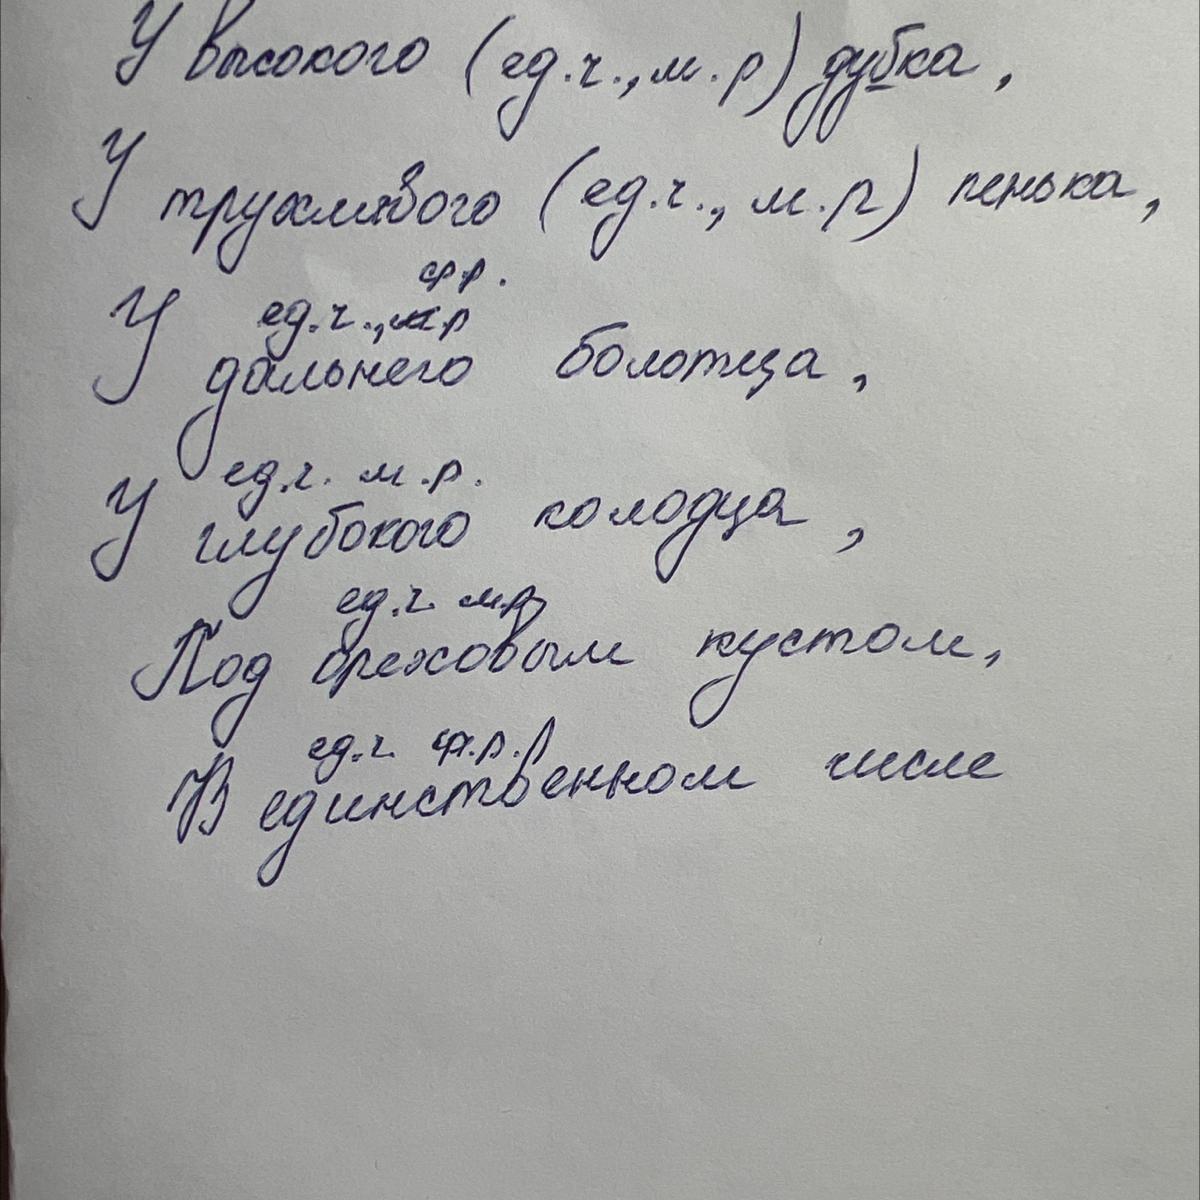 У высокого (ед.ч., м.р) дубка,
У трухлявого (ед.ч., м.р) пенька,
ср.р.
ед.ч., м.р
У дальнего болотца,
ед.ч. м.р.
У глубокого колодца,
ед.ч. м.р
Под ореховым кустом,
ед.ч. ср.р.
В единственном числе